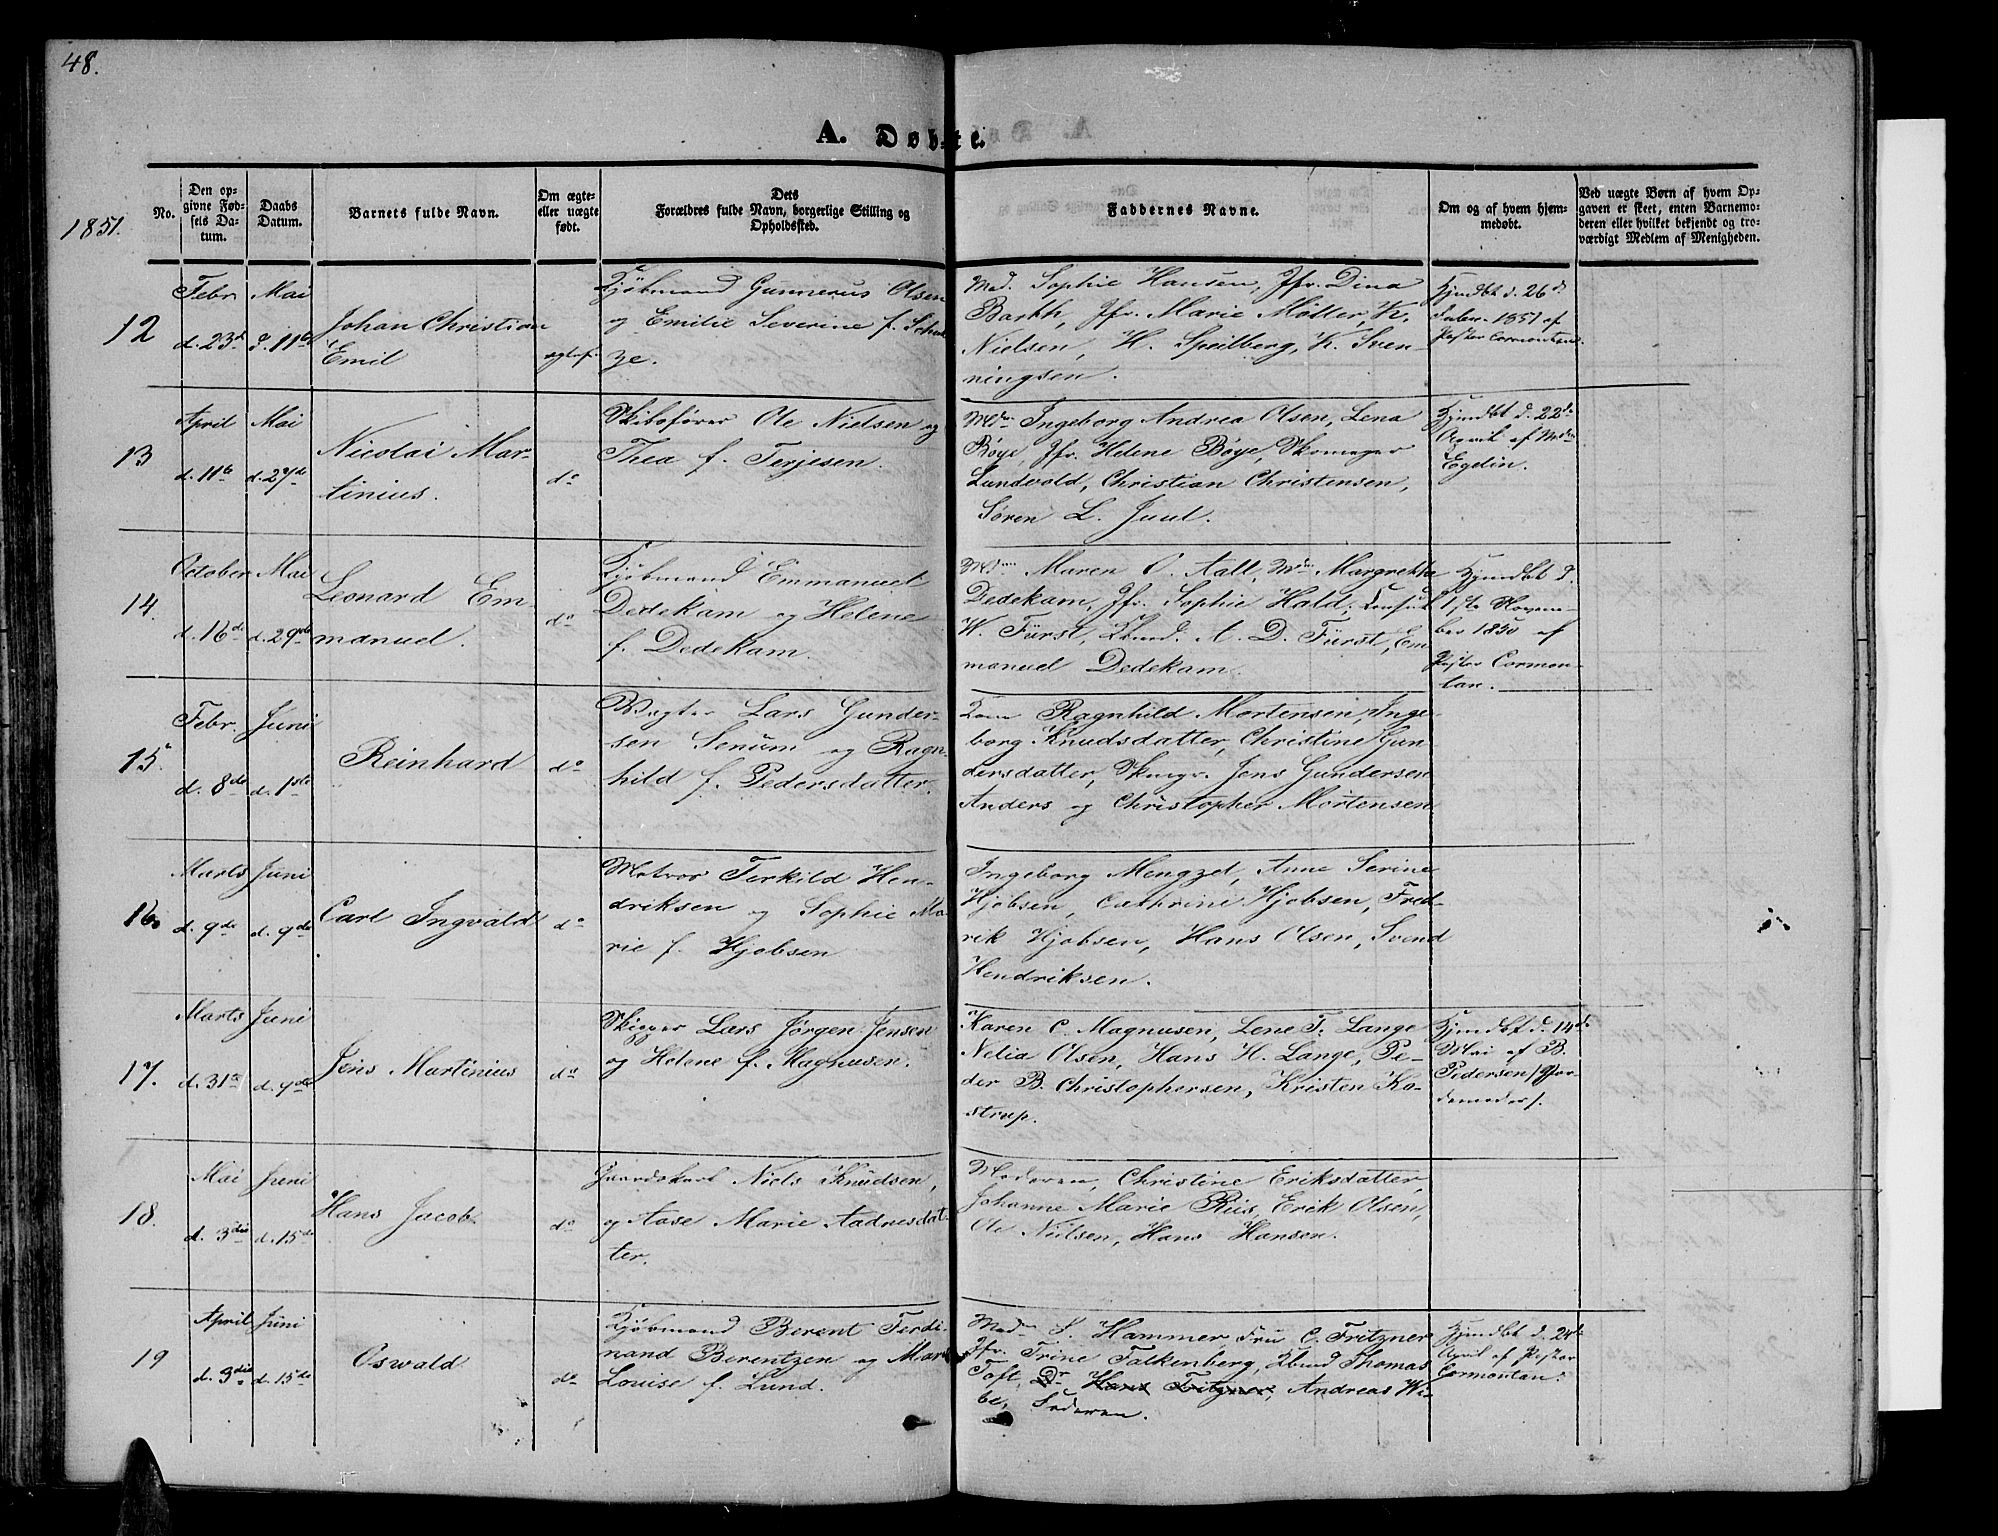 48.
A. Døbte.
1851.
No.
Den op-
givne Fød-
sels Da-
tum.
Daabs
Datum.
Barnets fulde Navn.
Om ægte-
eller uægte
født.
Dets
Forældres fulde Navn, borgerlige Stilling og
Opholdssted.
Faddernes Navne.
Om og af hvem hjem-
medøbt.
Ved uægte Børn af hvem Op-
gaven er skeet, enten Barnemo-
deren eller hvilket bekjendt og tro-
værdigt Medlem af Menigheden.
12
Febr.
d. 23d
Mai
d. 11te
Johan Christian
Emil
ægtef.
Kjøbmand Gunnerus Olsen
og Emilie Severine f. Schul
ze.
Mad. Sophie Hansen, Jfr. Dina
Barth, Jfr. Marie Møller, K.
Nielsen, H. Speilberg, K. Sven-
ningsen.
Hjmdbt d. 26d
1851 af
Pastor Cormontan.
13
April
d. 11te
Mai
d. 27de
Nicolai Mar-
tinius.
do
Skibsfører Ole Nielsen og
Thea f. Terjesen.
Mdm Ingeborg Andrea Olsen, Lena
Bøye, Jfr. Helene Bøye, Skomager
Lundvold, Christian Christensen,
Søren L. Juul.
Hjmdbt d. 22de
April af Mdm
Egelin.
14.
October
d. 16de
Mai
d. 29de
Leonard Em-
manuel.
do
Kjøbmand Emmanuel
Dedekam og Helene
f. Dedekam.
Mdm Maren O. Aall, Mdm Margrethe
Dedekam, Jfr. Sophie Hald, Konsul
W. Fürst, Kbmd. A. D. Fürst, Em
manuel Dedekam.
Hjmdbt d.
1ste Novem-
ber 1850 af
Pastor Cormon-
tan.
15.
Febr.
d. 8de
Juni
d. 1ste
Reinhard
do
Vægter Lars Gunder-
sen Senum og Ragn-
hild f. Pedersdatter.
Kone Ragnhild Mortensen, Inge-
borg Knudsdatter, Christine Gun
dersdatter, Skmgr. Jens Gundersen
Anders og Christopher Mortensen.
16.
Marts
d. 9de
Juni
d. 9de
Carl Ingvald
do
Matros Terkild Hen-
driksen og Sophie Ma-
rie f. Hjobsen
Ingeborg Mengzel, Anne Serine
Hjobsen, Cathrine Hjobsen, Fred-
rik Hjobsen, Hans Olsen, Svend
Hendriksen.
17.
Marts
d. 31te
Juni
d. 9de
Jens Martinius
do
Skipper Lars Jørgen Jensen
og Helene f. Magnusen.
Karen C. Magnusen, Lene T. Lange
Nelia Olsen, Hans H. Lange, Pe-
der B. Christophersen, Kristen Ka-
strup.
Hjmdbt d. 14de
Mai af B.
Pedersen /Jor-
demoder/.
18.
Mai
d. 3die
Juni
d. 15de
Hans Jacob
do
Gaardskarl Niels Knudsen,
og Aase Marie Aadnesdat-
ter.
Moderen, Christine Eriksdatter,
Johanne Marie Riis, Erik Olsen,
Ole Nielsen, Hans Hansen.
19
April
d. 3die
Juni
d. 15de
Oswald
do
Kjøbmand Berent Ferdi-
nand Berentzen og Marie
Louise f. Lund.
Mad. S. Hammer Fru C. Fritzner
Jfr. Trine Falkenberg, Kbmd Thomas
Toft, Dr Hans Fritzner, Andreas Wi-
be, Faderen.
Hjmdbt d. 24de
April af Pastor
Cormontan.